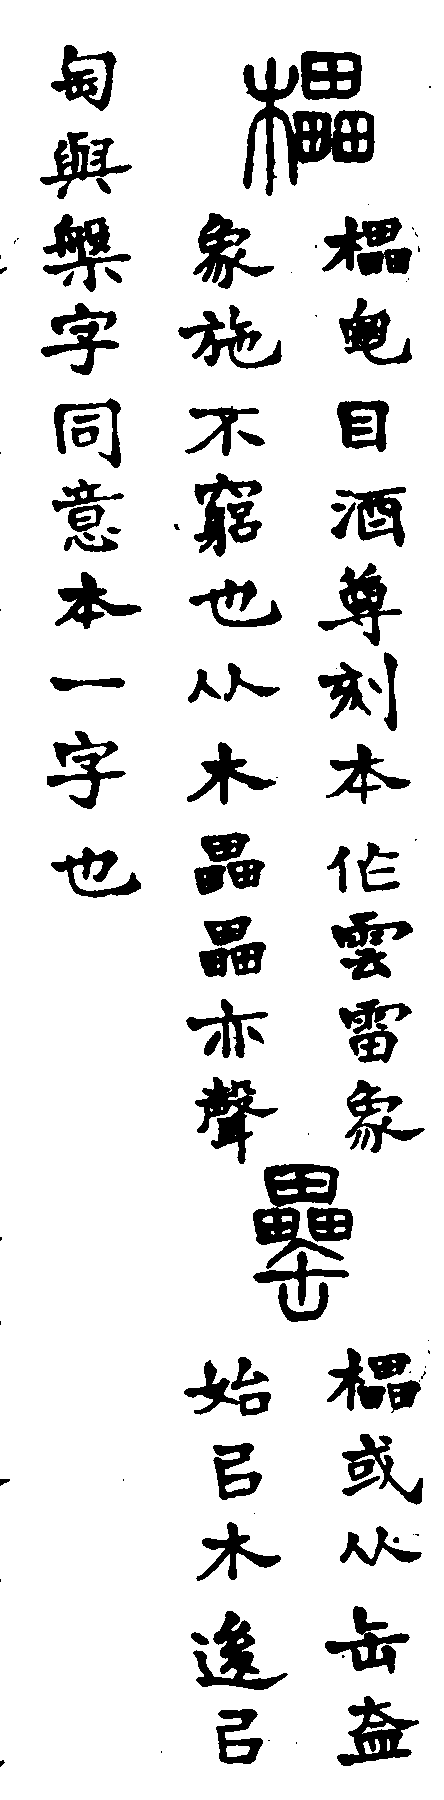 櫑
櫑龜目酒尊刻本作雲雷象
象施不窮也从木畾畾亦聲
罍
櫑或从缶盇
始㠯木𨒥㠯
匋與槃字同意本一字也